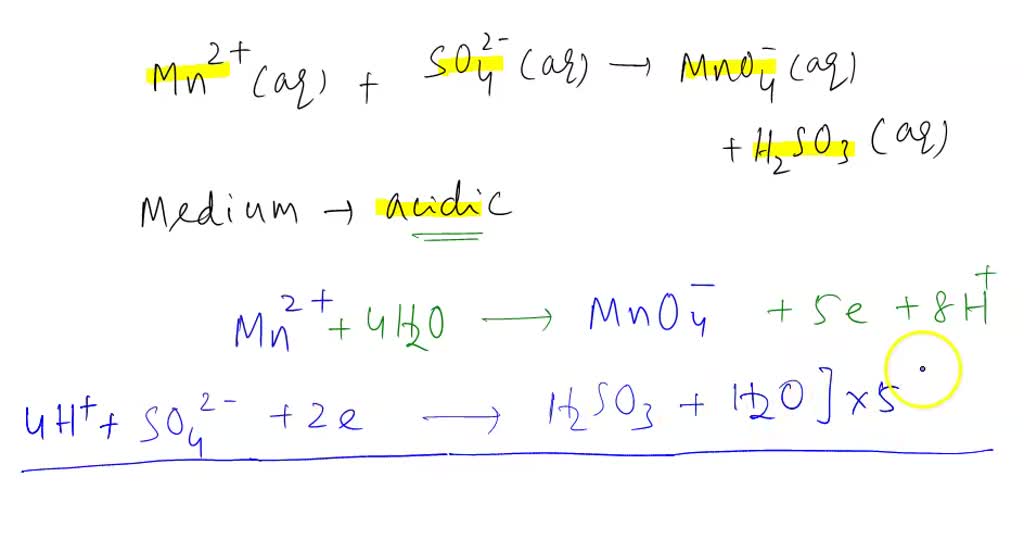 Mn²⁺(aq) + SO₄²⁻(aq) → MnO₄⁻(aq)
+ H₂SO₃(aq)
Medium → acidic
Mn²⁺ + 4H₂O ⟶ MnO₄⁻ + 5e + 8H⁺
4H⁺ + SO₄²⁻ + 2e ⟶ H₂SO₃ + H₂O] × 5